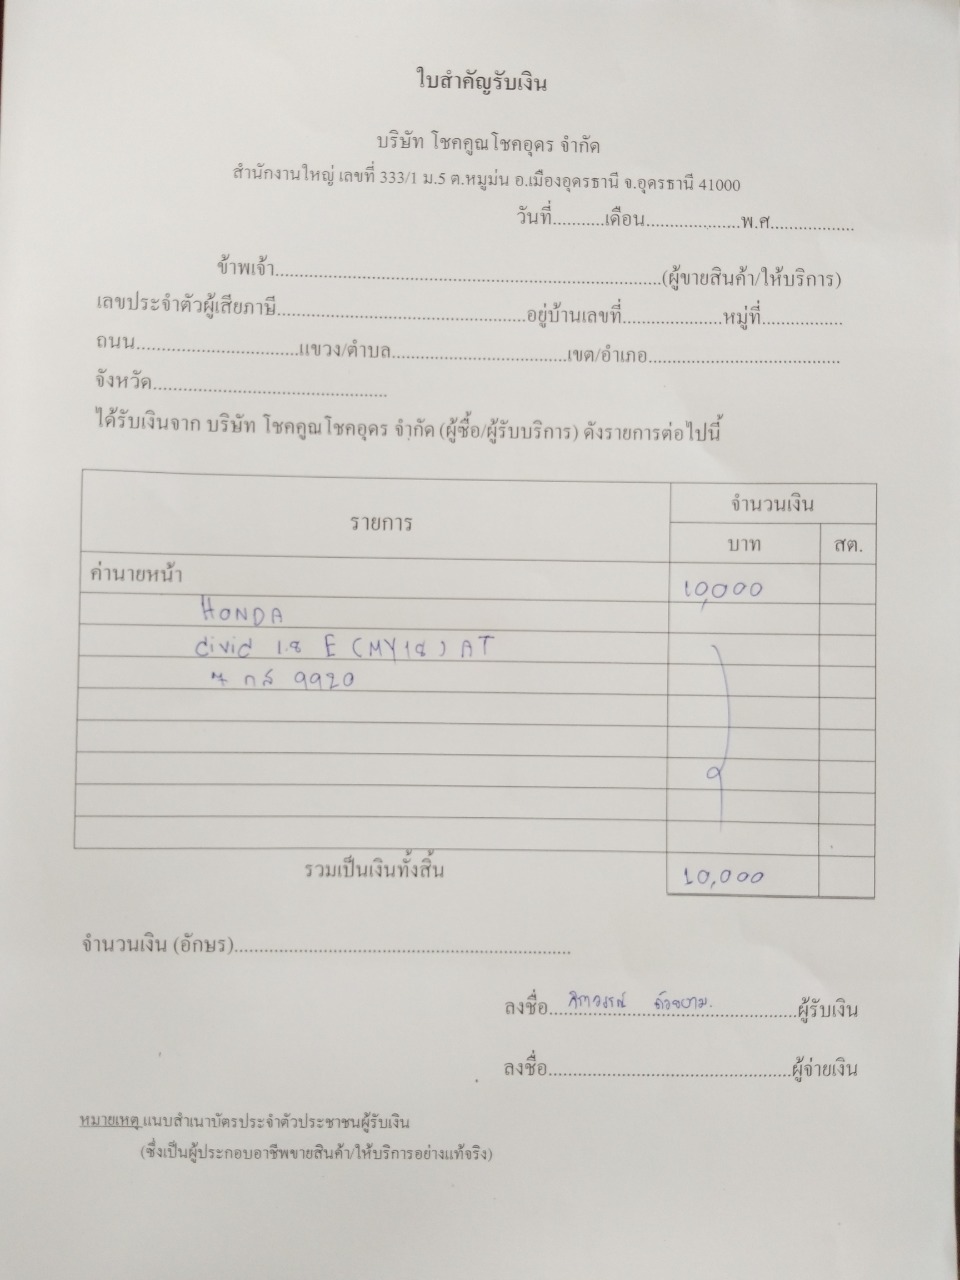 ใบสำคัญรับเงิน
บริษัท โชคคูณโชคอุดร จำกัด
สำนักงานใหญ่ เลขที่ 333/1 ม.5 ต.หมูม่น อ.เมืองอุดรธานี จ.อุดรธานี 41000
วันที่...........เดือน....................พ.ศ..................
ข้าพเจ้า..............................................................................(ผู้ขายสินค้า/ให้บริการ)
เลขประจำตัวผู้เสียภาษี..................................................อยู่บ้านเลขที่....................หมู่ที่................
ถนน.................................แขวง/ตำบล....................................เขต/อำเภอ.......................................
จังหวัด................................................
ได้รับเงินจาก บริษัท โชคคูณโชคอุดร จำกัด (ผู้ซื้อ/ผู้รับบริการ) ดังรายการต่อไปนี้
รายการ จำนวนเงิน
บาท สต.
ค่านายหน้า 10,000
HONDA
civic 1.8 E (MY18) AT
7 กส 9920
รวมเป็นเงินทั้งสิ้น 10,000
จำนวนเงิน (อักษร)....................................................................
ลงชื่อ..................................................ผู้รับเงิน
ลงชื่อ.................................................ผู้จ่ายเงิน
หมายเหตุ แนบสำเนาบัตรประจำตัวประชาชนผู้รับเงิน
(ซึ่งเป็นผู้ประกอบอาชีพขายสินค้า/ให้บริการอย่างแท้จริง)